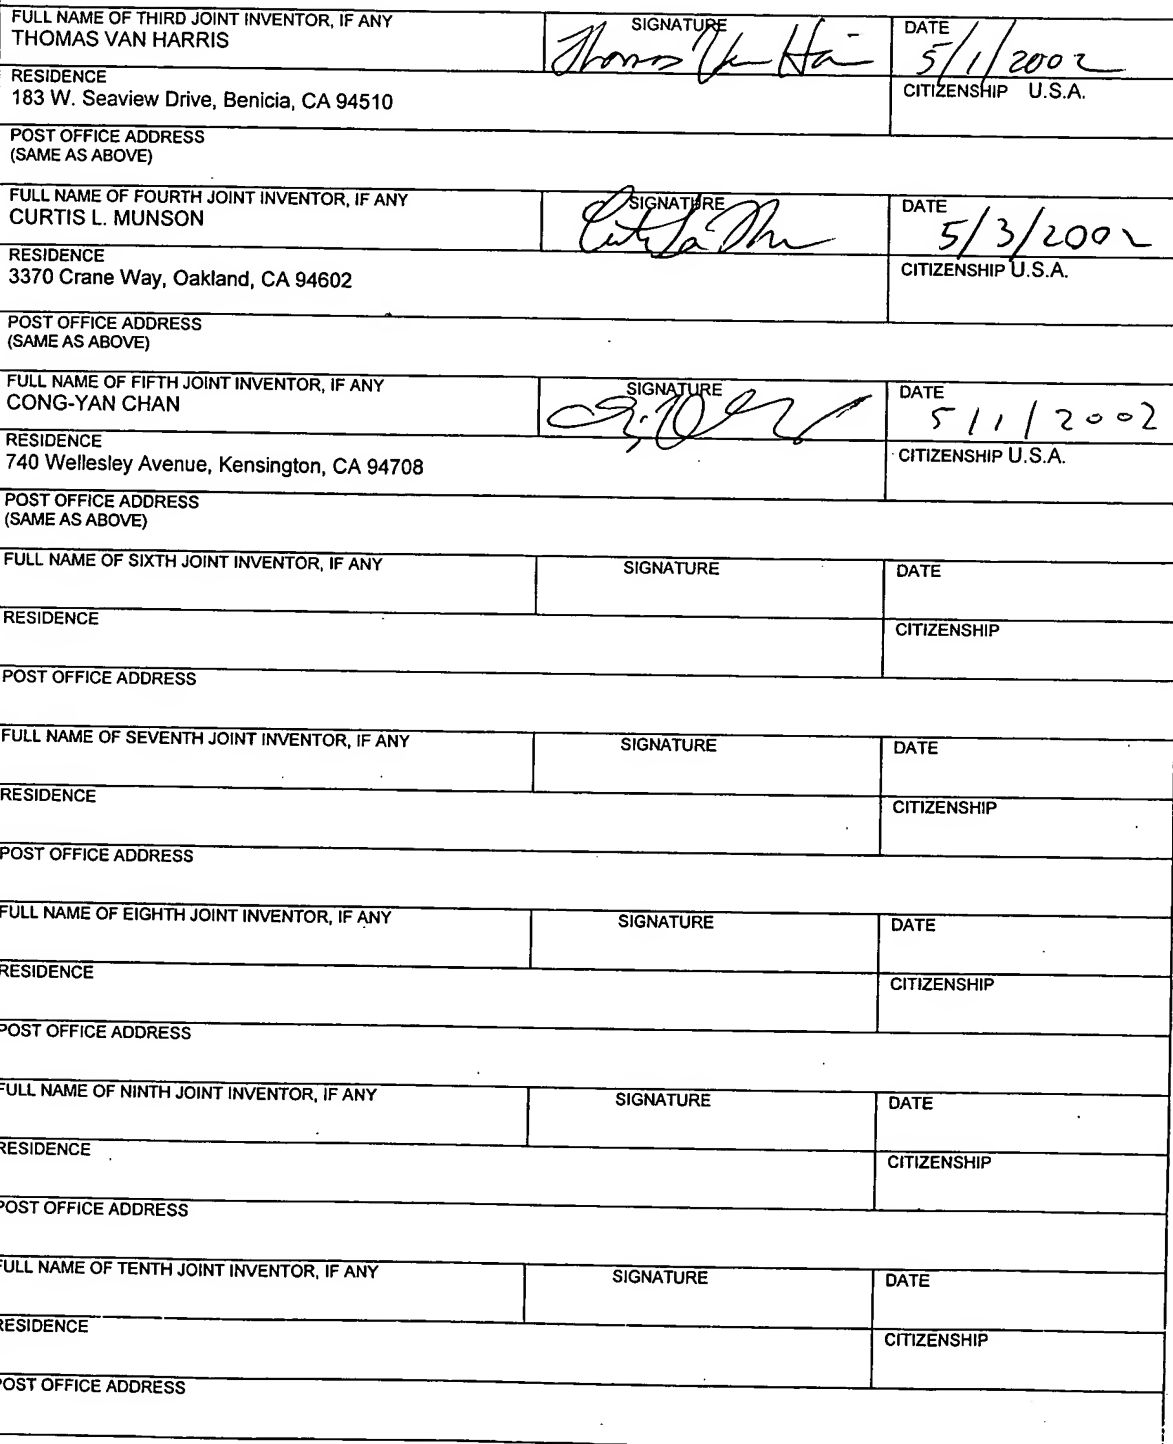 FULL NAME OF THIRD JOINT INVENTOR, IF ANY SIGNATURE DATE
THOMAS VAN HARRIS Thomas Van Harris 5/1/2002
RESIDENCE CITIZENSHIP U.S.A.
183 W. Seaview Drive, Benicia, CA 94510
POST OFFICE ADDRESS
(SAME AS ABOVE)
FULL NAME OF FOURTH JOINT INVENTOR, IF ANY SIGNATURE DATE
CURTIS L. MUNSON 5/3/2002
RESIDENCE CITIZENSHIP U.S.A.
3370 Crane Way, Oakland, CA 94602
POST OFFICE ADDRESS
(SAME AS ABOVE)
FULL NAME OF FIFTH JOINT INVENTOR, IF ANY SIGNATURE DATE
CONG-YAN CHAN 5/1/2002
RESIDENCE CITIZENSHIP U.S.A.
740 Wellesley Avenue, Kensington, CA 94708
POST OFFICE ADDRESS
(SAME AS ABOVE)
FULL NAME OF SIXTH JOINT INVENTOR, IF ANY SIGNATURE DATE
RESIDENCE CITIZENSHIP
POST OFFICE ADDRESS
FULL NAME OF SEVENTH JOINT INVENTOR, IF ANY SIGNATURE DATE
RESIDENCE CITIZENSHIP
POST OFFICE ADDRESS
FULL NAME OF EIGHTH JOINT INVENTOR, IF ANY SIGNATURE DATE
RESIDENCE CITIZENSHIP
POST OFFICE ADDRESS
FULL NAME OF NINTH JOINT INVENTOR, IF ANY SIGNATURE DATE
RESIDENCE CITIZENSHIP
POST OFFICE ADDRESS
FULL NAME OF TENTH JOINT INVENTOR, IF ANY SIGNATURE DATE
RESIDENCE CITIZENSHIP
POST OFFICE ADDRESS